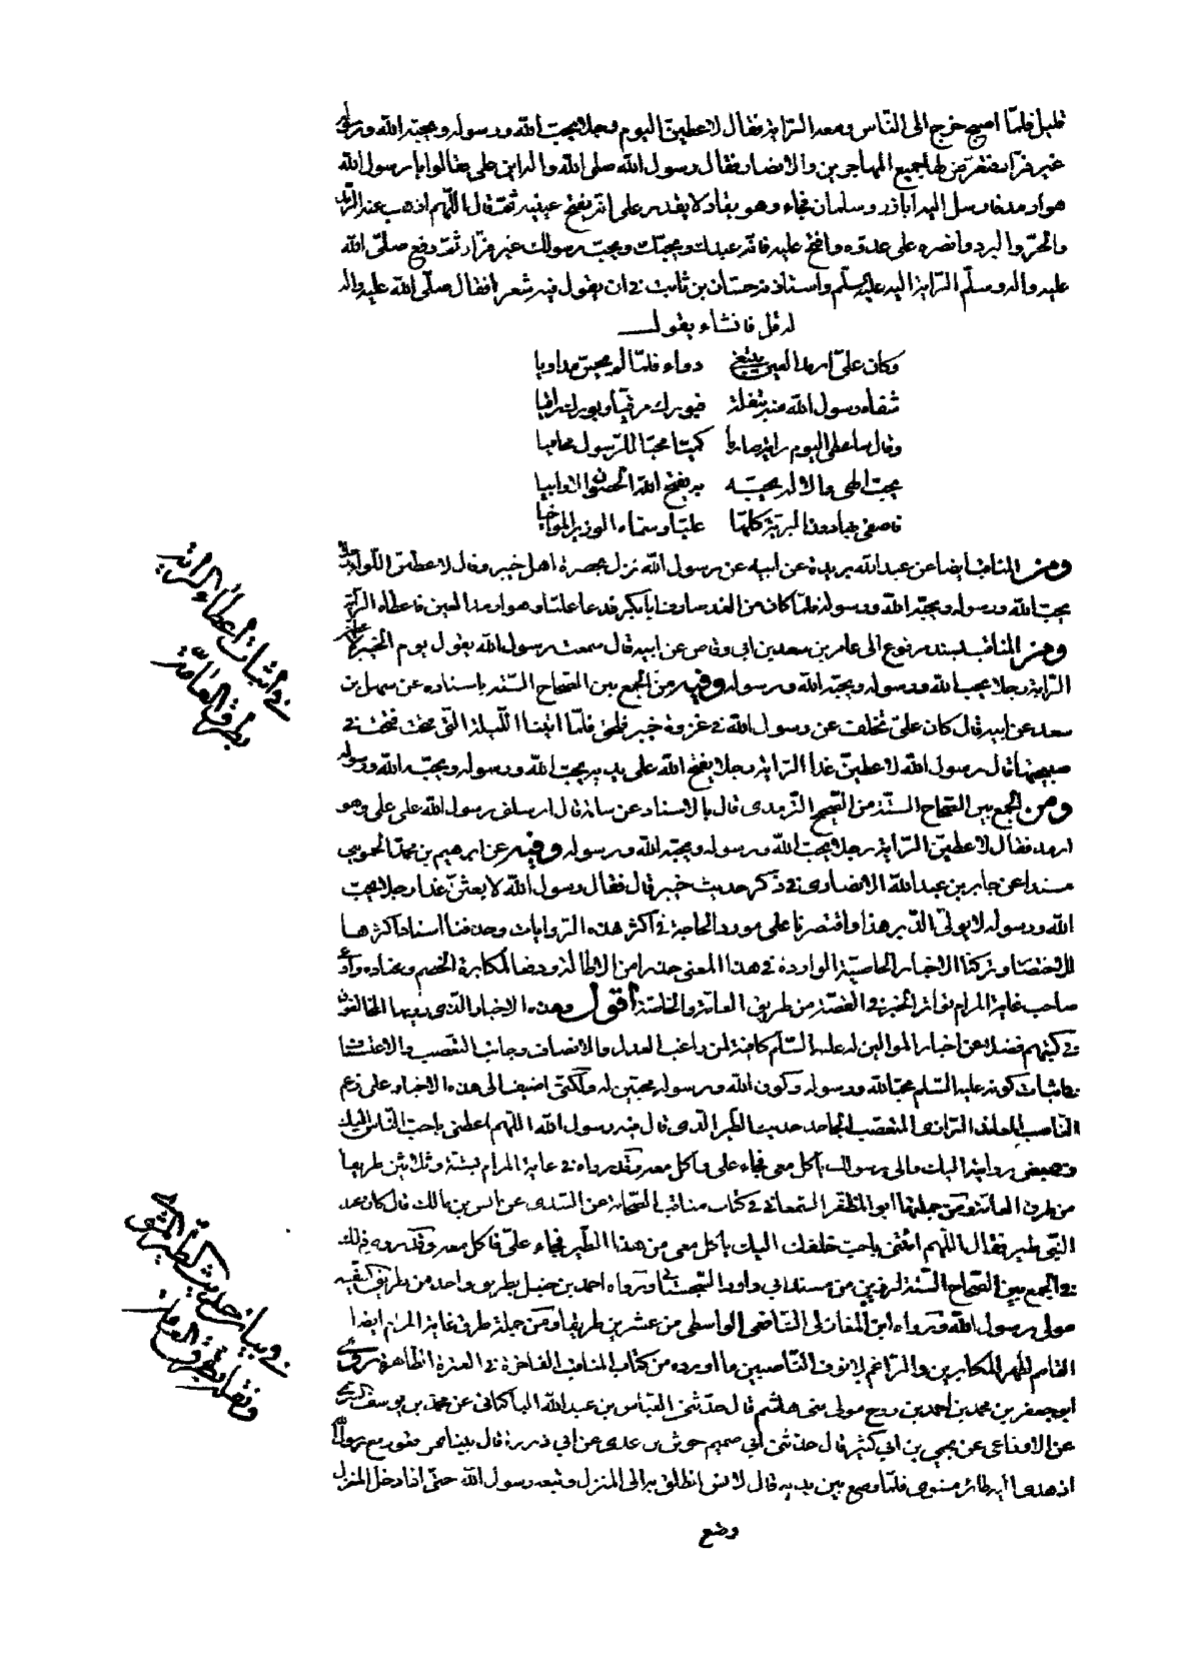 قليل فلمّا اصبح خرج الى النّاس ومعه الرّاية فقال لاعطينّ اليوم رجلا يحبّ الله ورسوله ويحبّه الله ورسوله
غير فرّار فتعرّض لها جميع المهاجرين والانصار فقال رسول الله صلى الله واله اين علي فقالوا يا رسول الله
هو ارمد فارسل اليه اباذر وسلمان فجاء وهو يقاد لا يقدر على ان يفتح عينيه ثمّ قال اللّهم اذهب عنه الرّمد
والحرّ والبرد وانصره على عدوّه وافتح عليه فانّه عبدك ويحبّك ويحبّ رسولك غير فرّار ثمّ دفع صلّى الله
عليه واله وسلّم الرّاية اليه عليه السّلم واستاذنه حسّان بن ثابت في ان يقول فيه شعرا فقال صلّى الله عليه واله
له قل فانشاء يقول
وكان عليّ ارمد العين يبتغي دواء فلمّا لم يحسّ مداويا
شفاه رسول الله منه بتفلة فبورك مرقيّا وبورك راقيا
وقال ساعطي اليوم راية صارما كميّا محبّا للرّسول محاميا
يحبّ الهي والاله يحبّه به يفتح الله الحصون الاوابيا
فاصفى بها دون البريّة كلّها عليّا وسمّاه الوزير المواخيا
ومن المناقب ايضا عن عبد الله بريدة عن ابيه عن رسول الله نزل بحضرة اهل خيبر وقال لاعطينّ اللّواء رجلا
يحبّ الله ورسوله ويحبّه الله ورسوله فلمّا كان من الغد صادفنا بابكر فدعا عليّا وهو ارمد العين فاعطاه الرّاية
ومن المناقب بسند مرفوع الى عامر بن سعد بن ابي وقاص عن ابيه قال سمعت رسول الله يقول يوم الخيبر لاعطينّ
الرّاية رجلا يحب الله ورسوله ويحبّه الله ورسوله وفيه من الجمع بين الصّحاح السّتة باسناده عن سهل بن
سعد عن ابيه قال كان عليّ تخلّف عن رسول الله في غزوة خيبر فلحق فلمّا اتينا اللّيلة الّتي فتحت في
صبيحتها قال رسول الله لاعطينّ غدا الرّاية رجلا يفتح الله على يديه يحبّ الله ورسوله ويحبّه الله ورسوله
ومن الجمع بين الصّحاح السّتة من الصّحيح التّرمذي قال بالاسناد عن سلمة قال ارسلني رسول الله على علي وهو
ارمد فقال لاعطينّ الرّاية رجلا يحبّ الله ورسوله ويحبّه الله ورسوله وفيه عن ابرهيم بن محمّد الحمويني
مسندا عن جابر بن عبد الله الانصاري في ذكر حديث خيبر قال فقال رسول الله لابعثنّ غدا رجلا يحبّ
الله ورسوله لا يولّي الدّبر هذا واقتصرنا على مورد الحاجة في اكثر هذه الرّوايات وحذفنا اسناد اكثرها
للاختصار وتركنا الاخبار الخاصيّة الواردة في هذا المعنى حذرا من الاطالة ودفعا لمكابرة الخصم وعناده وادّعى
صاحب غاية المرام تواتر الخبر في القصّة من طريق العامّة والخاصّة اقول وهذه الاخبار الّتي رويها المخالفون
في كتبهم فضلا عن اخبار الموالين له عليه السّلم كافية لمن راعب العدل والانصاف وجانب التعصّب والاعتساف
في اثبات كونه عليه السّلم محبّا لله ورسوله وكون الله ورسوله محبّين له ولكنّي اضيف الى هذه الاخبار على زعم
النّاصب المعاند الرّازي المتعصّب الجاحد حديث الطّير الّذي قال فيه رسول الله اللّهم اعطني باحبّ النّاس اليك
وفي بعض رواية اليك والى رسولك ياكل معي فجاء علي واكل معه وقد رواه في غاية المرام بستّة وثلاثين طريقا
من طرق العامّة ومن جملتها ابو المظفّر السّمعاني في كتاب مناقب الصّحابة عن السّدي عن انس بن مالك قال كان عند
النّبي طير فقال اللّهم ائتني باحبّ خلقك اليك ياكل معي من هذا الطّير فجاء عليّ فاكل معه وقد روى ذلك
في الجمع بين الصّحاح السّتة لرزين من مسند ابي داود السّجستاني ورواه احمد بن حنبل بطريق واحد من طريق سفينة
مولى رسول الله ورواه ابن المغازلي القاضي الواسطي من عشرين طريقا ومن جملة طرق غاية المرام ايضا
القاصم لظهر المكابرين والرّاغم لانوف النّاصبين ما اورده من كتاب المناقب الفاخرة في العترة الطّاهرة روى
ابو جعفر بن محمد بن احمد بن روح مولى بني هاشم قال حدّثني العبّاس بن عبد الله الباكناني عن محمّد بن يوسف
عن الاوزاعي عن يحيى بن ابي كثير قال حدّثني ابي صميم حوش بن عدي عن ابي ذر ره قال بينا نحن قعود مع رسول الله
اذ هدي اليه طائر مشوي فلمّا وضع بين يديه قال لانس انطلق به الى المنزل وتبعه رسول الله حتّى اذا دخل المنزل
وضع
في اثبات اعطاء الراية
بطرق العامّة
في بيان حديث الطير المشوي
ونقله بطرق العامة